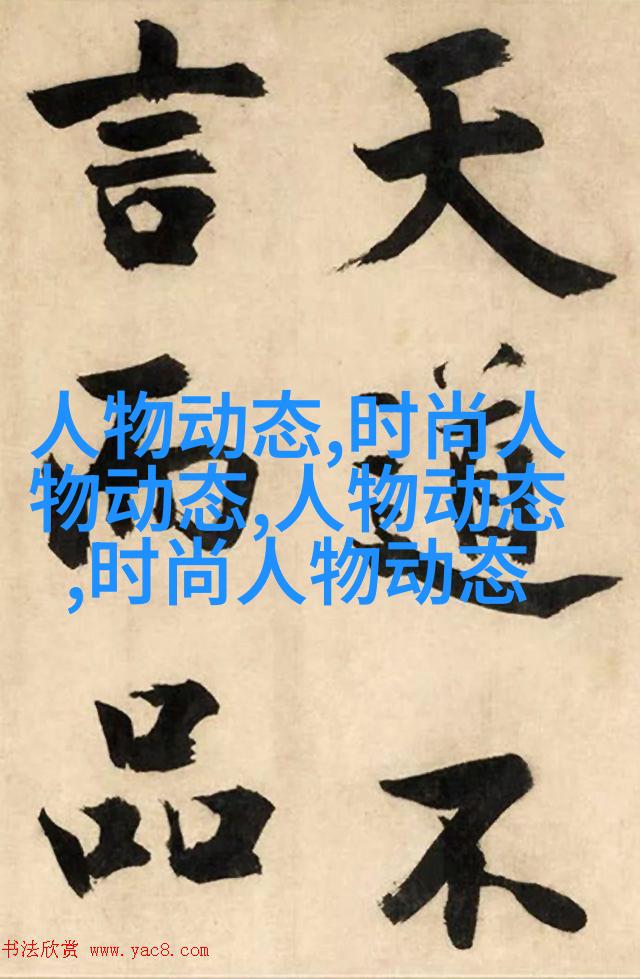 天道不
言而品
人物动态,时尚人
物动态,人物动态
,时尚人物动态
书法欣赏 www.yac8.com